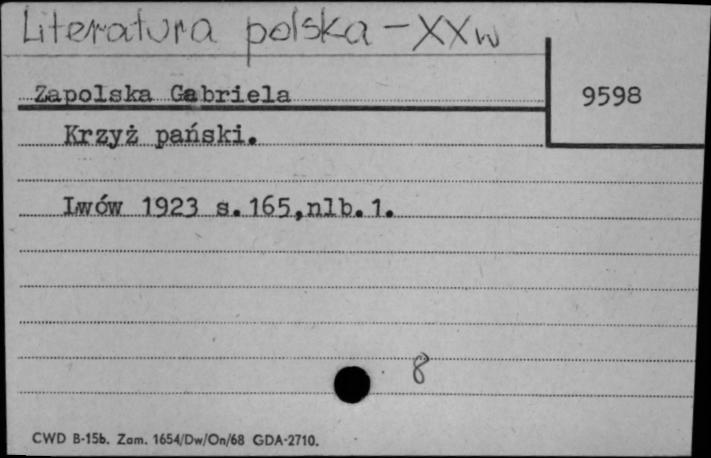 Literatura polska - XXw
Zapolska Gabriela
9598
Krzyż pański.
Lwów 1923 s.165,nlb.1.
8
CWD B-15b. Zam. 1654/Dw/On/68 GDA-2710.